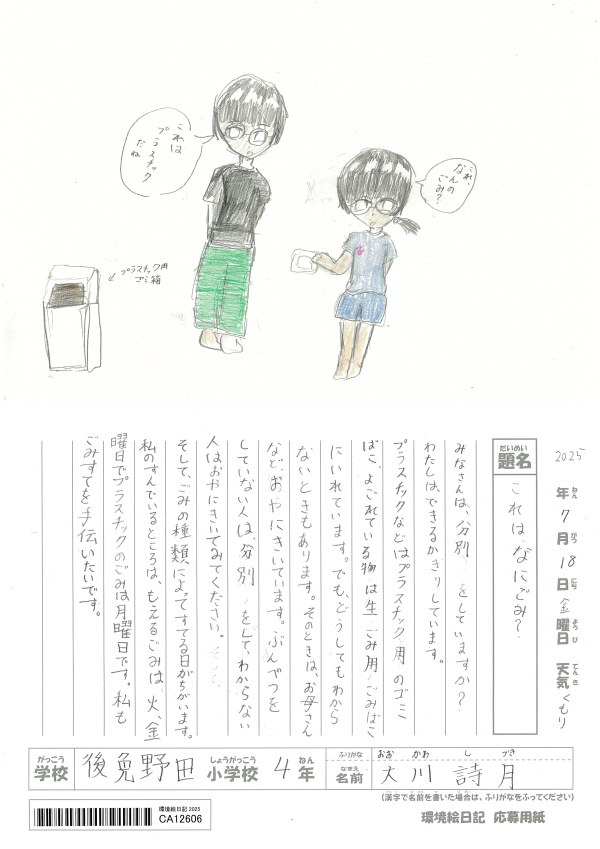 これは
プラスチック
だね
これ、
なんの
ごみ？
プラスチック用
ゴミ箱
2025年 7月 18日 金曜日 天気 くもり
ねん がつ にち ようび てんき
だいめい
題名
これは、なにごみ？
みなさんは、分別をしていますか？
わたしは、できるかぎりしています。
プラスチックなどはプラスチック用のゴミ
ばこ、よごれている物は生ごみ用のごみばこ
にいれています。でも、どうしてもわから
ないときもあります。そのときは、お母さん
など、おやにきいています。ぶんべつを
していない人は、分別をして、わからない
人はおやにきいてみてください。
そして、ごみの種類によってすてる日がちがいます。
私のすんでいるところは、もえるごみは、火、金
曜日でプラスチックのごみは月曜日です。私も
ごみすてを手伝いたいです。
がっこう しょうがっこう ねん
学校 後免野田 小学校 4年
ふりがな おお かわ し づき
なまえ
名前 大川 詩月
(漢字で名前を書いた場合は、ふりがなをふってください)
環境絵日記 2025
CA12606
環境絵日記 応募用紙